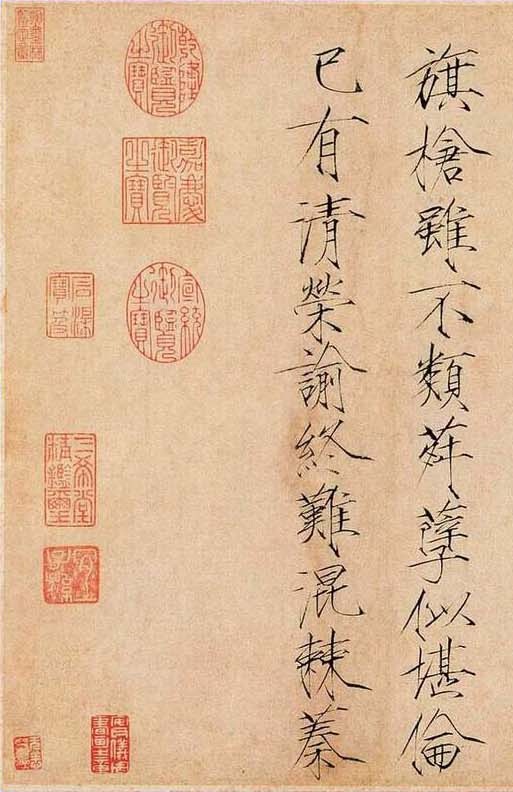 旗槍雖不類荈孽似堪倫
已有清榮諭終難混棘蓁
乾隆御覽之寶
嘉慶御覽之寶
宣統御覽之寶
石渠寶笈
三希堂精鑑璽
宜子孫
安儀周書畫之章